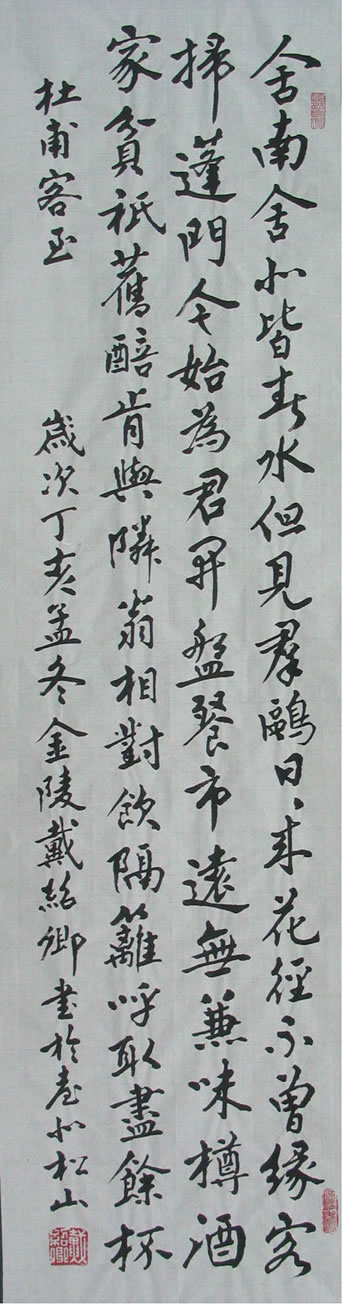 舍南舍北皆春水但見羣鷗日日來花徑不曾緣客
掃蓬門今始為君開盤餐市遠無兼味樽酒
家貧祇舊醅肯與隣翁相對飲隔籬呼取盡餘杯
杜甫客至
歲次丁亥孟冬金陵戴紹卿書於臺北松山